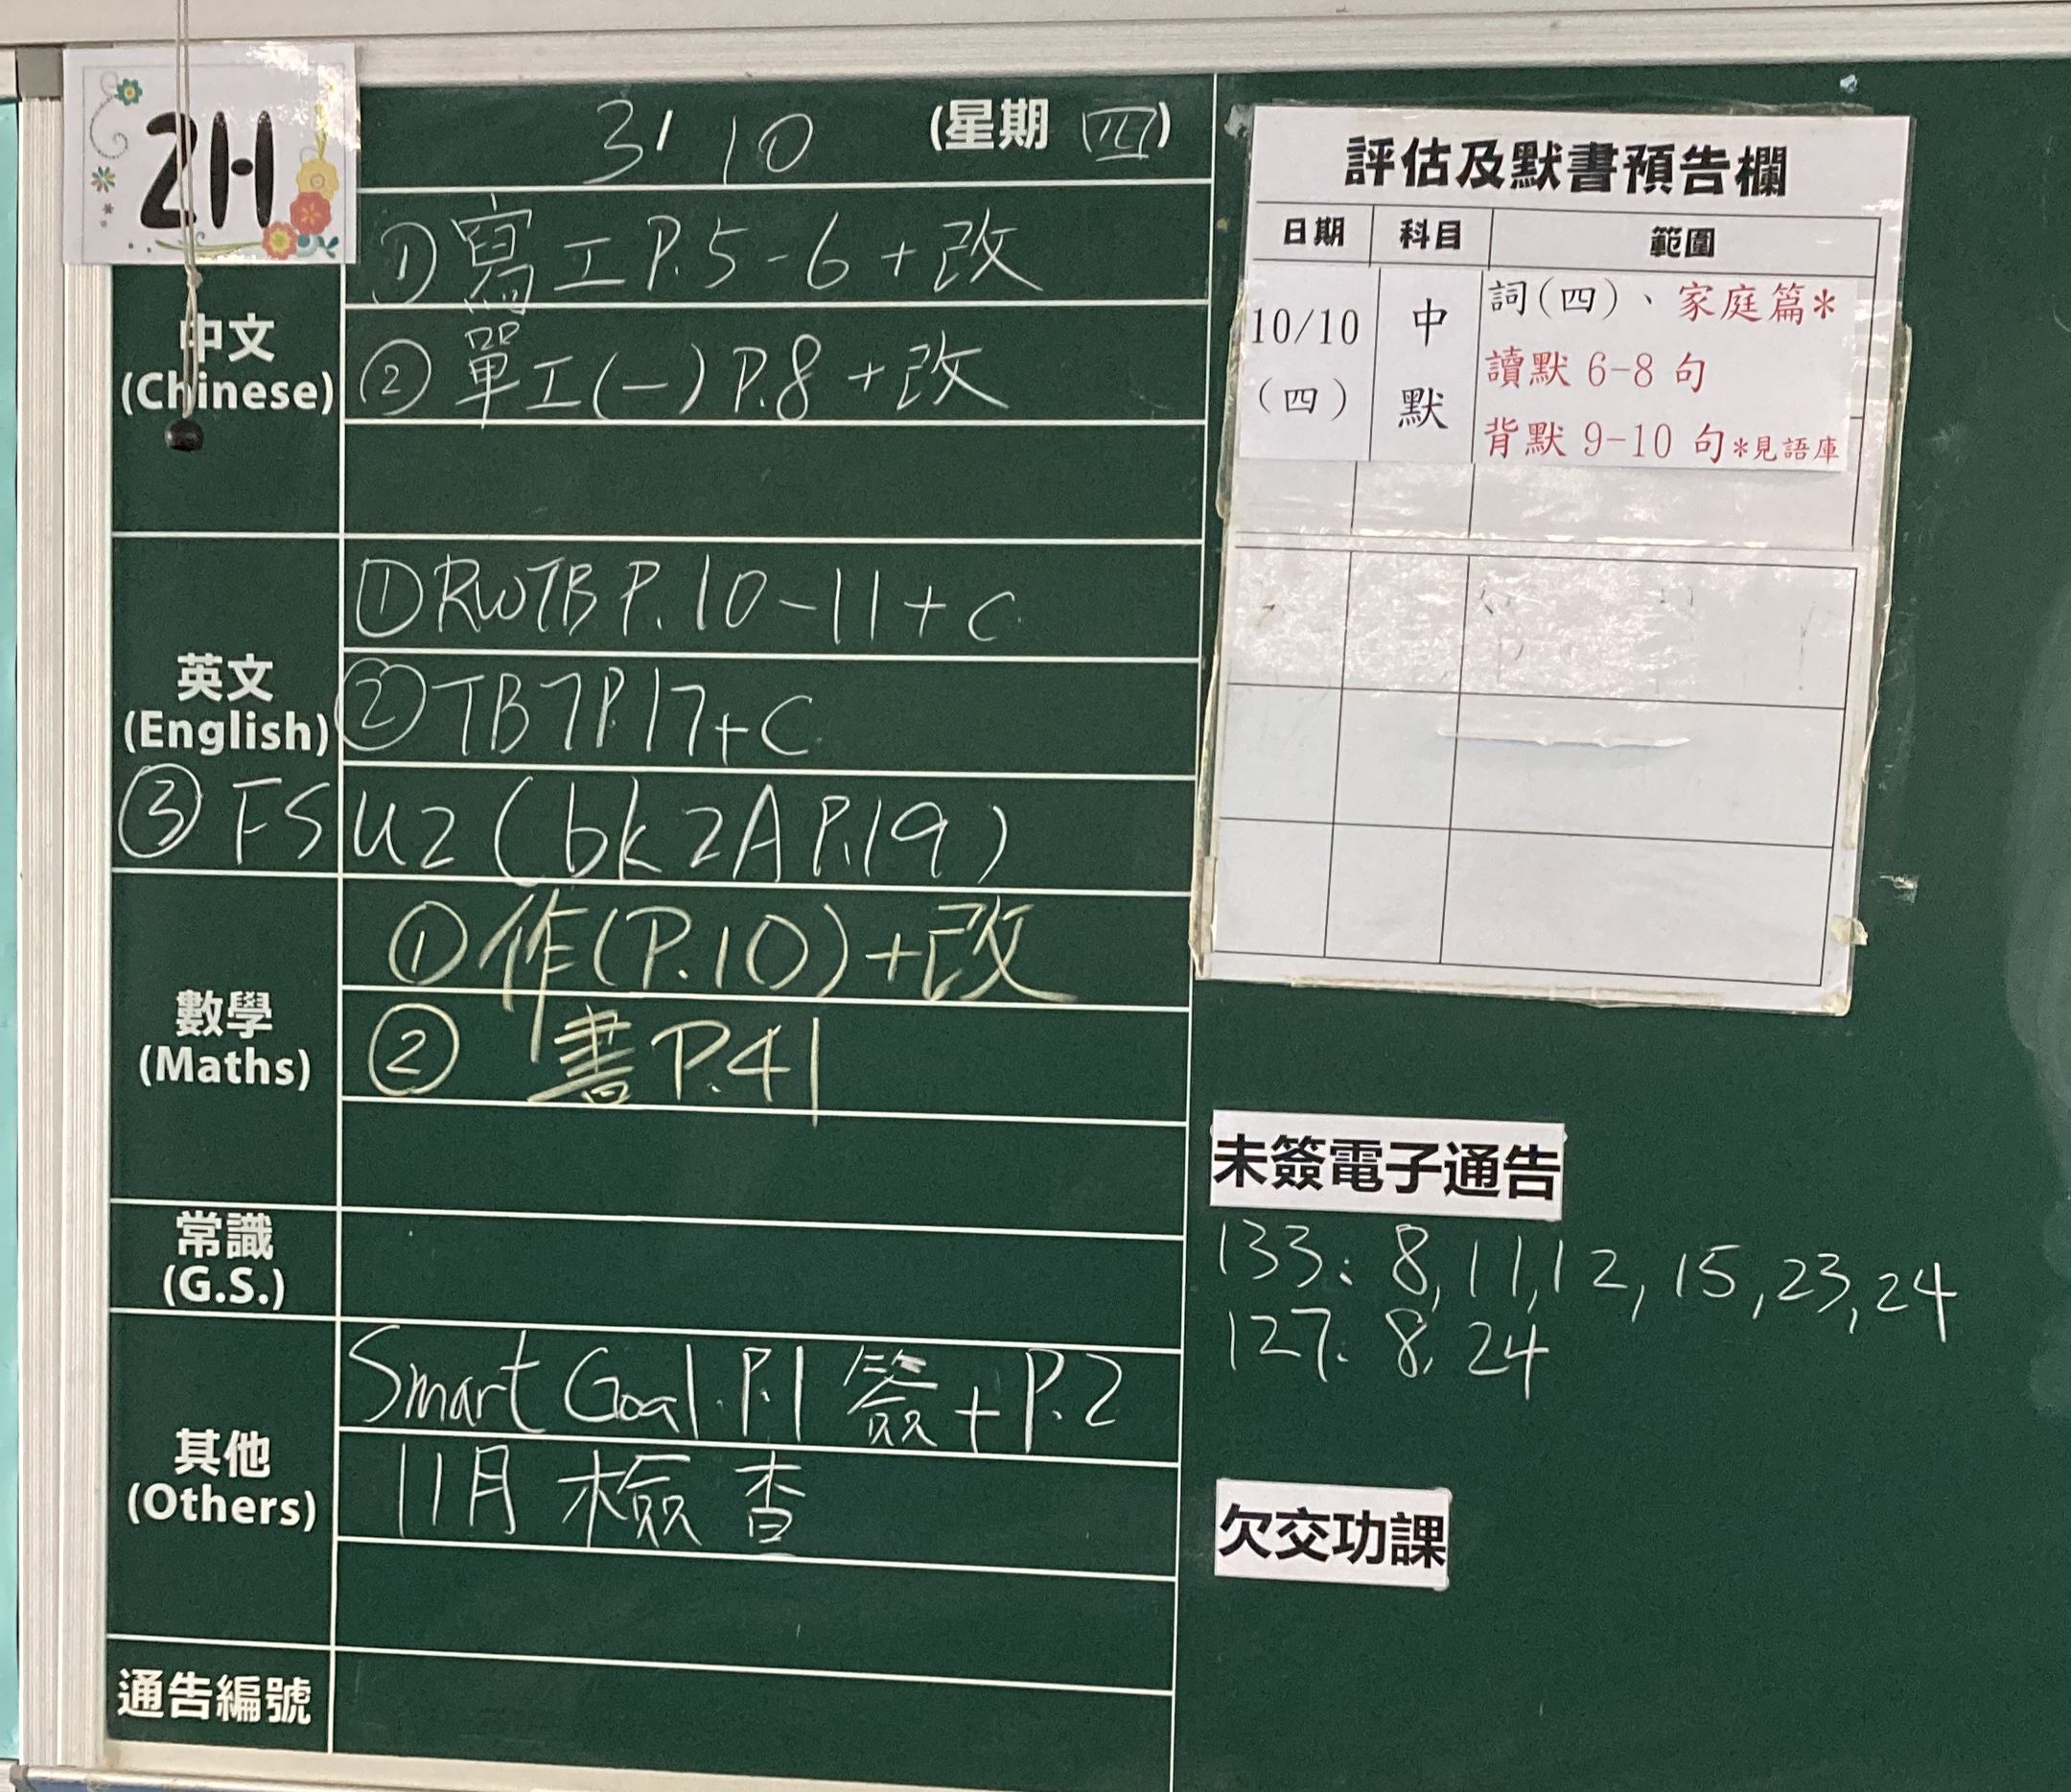 2H
3/10 (星期 四)
中文
(Chinese)
① 寫工 P.5-6 + 改
② 單工(一) P.8 + 改
英文
(English)
① RWTB P.10-11 + C
② TB7 P.17 + C
③ FS U2 (bk 2A P.19)
數學
(Maths)
① 作(P.10) + 改
② 書 P.41
常識
(G.S.)
其他
(Others)
Smart Goal P.1 簽 + P.2
11月 檢查
通告編號
評估及默書預告欄
日期 科目 範圍
10/10 (四) 中默 詞(四)、家庭篇*
讀默 6-8 句
背默 9-10 句 *見語庫
未簽電子通告
133: 8, 11, 12, 15, 23, 24
127: 8, 24
欠交功課